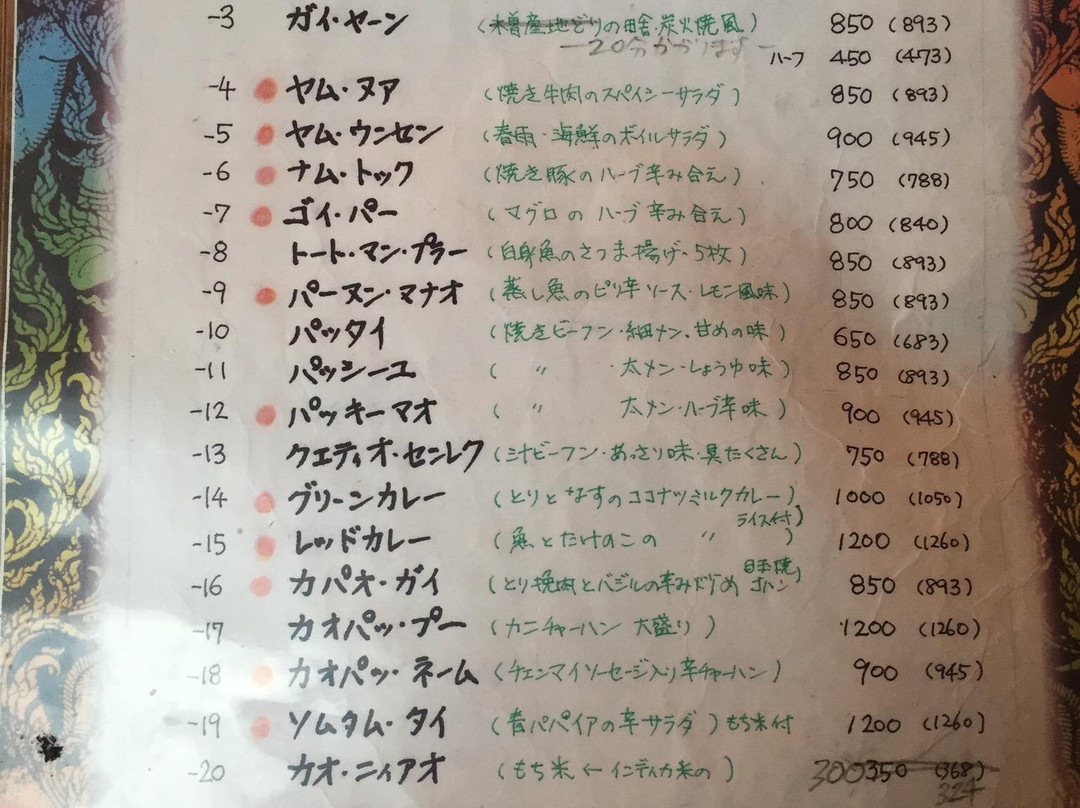 -3 ガイ・ヤーン (木曽産地どりの田舎炭火焼風) 850 (893)
—20分かかります— ハーフ 450 (473)
-4 ヤム・ヌア (焼き牛肉のスペイシーサラダ) 850 (893)
-5 ヤム・ウンセン (春雨・海鮮のボイルサラダ) 900 (945)
-6 ナム・トック (焼き豚のハーブ辛み合え) 750 (788)
-7 ゴイ・パー (マグロのハーブ辛み合え) 800 (840)
-8 トート・マン・プラー (白身魚のさつま揚げ・5枚) 850 (893)
-9 パーヌン・マナオ (蒸し魚のピリ辛ソース・レモン風味) 850 (893)
-10 パッタイ (焼きビーフン・細メン、甘めの味) 650 (683)
-11 パッシーユ ( 〃 ・太メン・しょうゆ味) 850 (893)
-12 パッキーマオ ( 〃 太メン・ハーブ辛味) 900 (945)
-13 クエティオ・センレク (汁ビーフン・あっさり味・具たくさん) 750 (788)
-14 グリーンカレー (とりとなすのココナツミルクカレー) 1000 (1050)
ライス付)
-15 レッドカレー (魚とたけのこの 〃 ) 1200 (1260)
-16 カパオ・ガイ (とり挽肉とバジルの辛み炒め 目玉焼ゴハン) 850 (893)
-17 カオパッ・プー (カニチャーハン 大盛り) 1200 (1260)
-18 カオパッ・ネーム (チェンマイソーセージ入り辛チャーハン) 900 (945)
-19 ソムタム・タイ (青パパイアの辛サラダ) もち米付 1200 (1260)
-20 カオ・ニィアオ (もち米 ← インディカ米の) 300 350 (368)
324